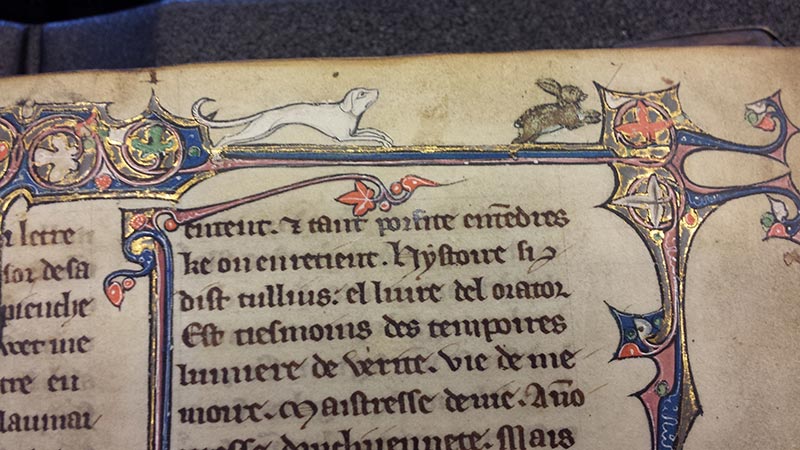 letre
sor de sa
me
tre en
entent. ⁊ tant porfite entēdres
ke on en retient. hystoire si
dist tullius: el liure del orator
Est tiesmoins des tempoires
lumiere de verite. vie de me
moire. Maistresse de vie. Anō
danchiennete. Mais